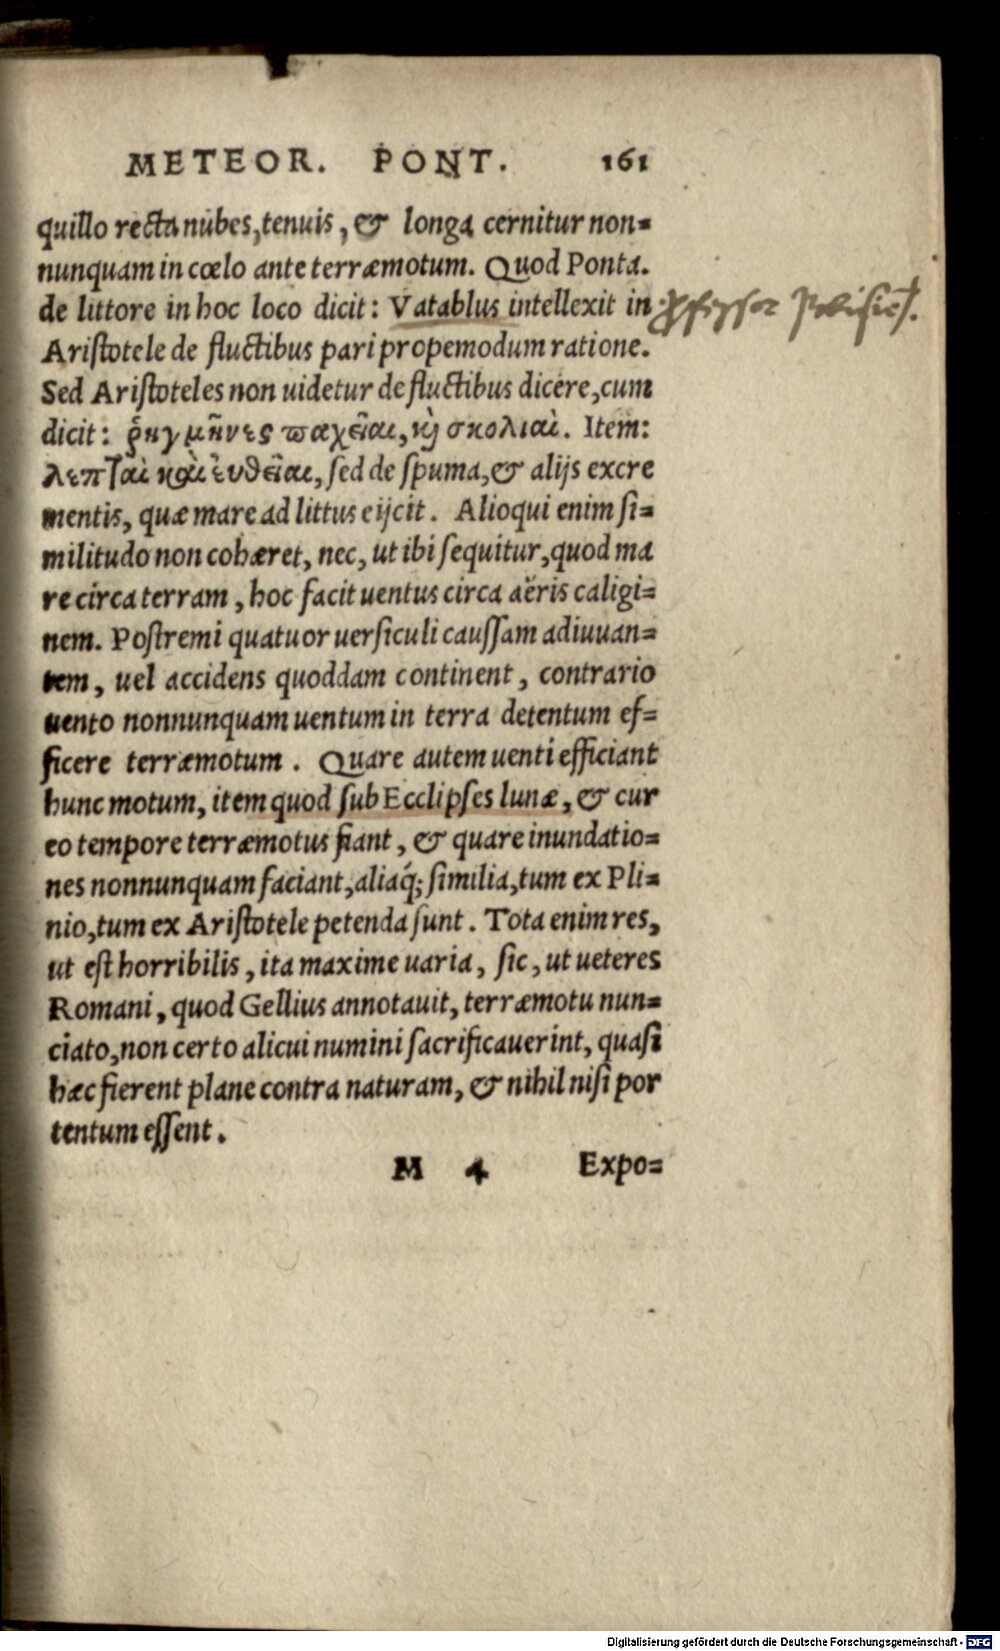 METEOR. PONT. 161
quillo recta nubes, tenuis, & longa cernitur non=
nunquam in cœlo ante terræmotum. Quod Ponta.
de littore in hoc loco dicit: Vatablus intellexit in
Aristotele de fluctibus pari propemodum ratione.
Sed Aristoteles non uidetur de fluctibus dicere, cum
dicit: ῥηγμῆνες παχεῖαι, κỳ σκολιαὶ. Item:
λεπταὶ καὶ εὐθεῖαι, sed de spuma, & alijs excre
mentis, quæ mare ad littus eijcit. Alioqui enim si=
militudo non cohæret, nec, ut ibi sequitur, quod ma
re circa terram, hoc facit uentus circa aëris caligi=
nem. Postremi quatuor uersiculi caussam adiuuan=
tem, uel accidens quoddam continent, contrario
uento nonnunquam uentum in terra detentum ef=
ficere terræmotum. Quare autem uenti efficiant
hunc motum, item quod sub Ecclipses lunæ, & cur
eo tempore terræmotus fiant, & quare inundatio=
nes nonnunquam faciant, aliaq́; similia, tum ex Pli=
nio, tum ex Aristotele petenda sunt. Tota enim res,
ut est horribilis, ita maxime uaria, sic, ut ueteres
Romani, quod Gellius annotauit, terræmotu nun=
ciato, non certo alicui numini sacrificauerint, quasi
hæc fierent plane contra naturam, & nihil nisi por
tentum essent.
M 4 Expo=
Digitalisierung gefördert durch die Deutsche Forschungsgemeinschaft - DFG